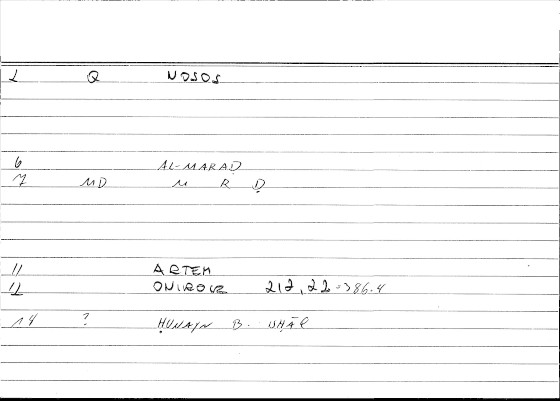 1 Q NOSOS
6 AL-MARAḌ
7 MD M R Ḍ
11 ARTEM
12 ONIROCR 212,22 = 386.4
14 ? ḤUNAYN B. ISḤĀQ